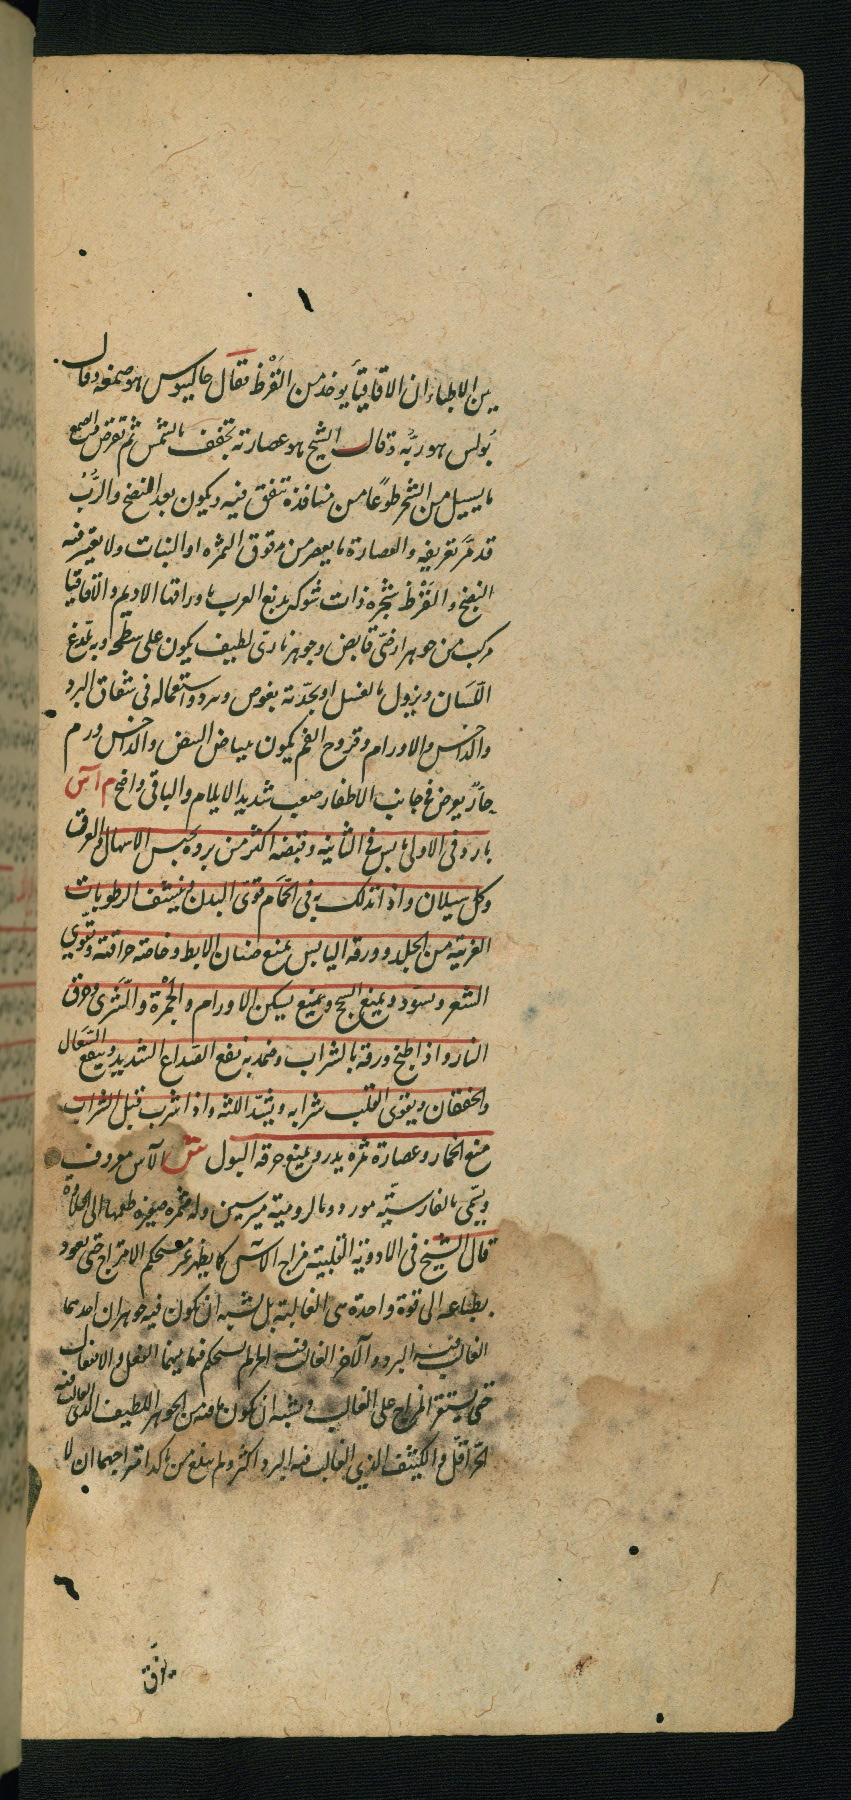 ١
بين الاطباء ان الاقاقيا يوخذ من القَرَظ فقال جالينوس هو صمغه وقال
بُولس هو ربُّه وقال الشيخ هو عصارته تجفف بالشمس ثم تقرض والصمغ
ما يسيل من الشجر طوعًا من منافذة تتفق فيه ويكون بعد النضج والرُّبُّ
قد مَرَّ تعريفه والعصارة ما يعصر من مدقوق الثمرة او النبات ولا يعتبر فيه
النضج والقَرَظ شجرة ذات شوكة يدبغ العرب باوراقها الاديم والاقاقيا
مركب من جوهر ارضىّ قابض وجوهر نارىّ لطيف يكون على سطحه وبه يلدغ
اللسان ويزول بالغسل او بحدّته يغوص ويبرد واستعماله فى شقاق البرد
والداحس والاورام وقروح الفم يكون ببياض البيض والداحس ورم
حارّ يعرض فى جانب الاظفار صعب شديد الايلام والباقى واضح م آس
بارد فى الاولى يابس فى الثانية وقبضه اكثر من برده يحبس الاسهال والعرق
وكل سيلان واذا تدلك به فى الحَمّام قوّى البدن وينشف الرطوبات
الغريبة من الجلد وورقه اليابس يمنع صنان الابط وخاصة حراقته وتقوّي
الشعر وتسود ويمنع السحج ويمنع يسكن الاورام والحُمْرة والشَرَى وحرق
النار واذا طبخ ورقه بالشراب وضمد به نفع الصداع الشديد وينفع السّعال
والخفقان ويقوى القلب شرابه ويشدّ اللثه واذا شرب قبل الشراب
منع الخمار وعصارة ثمره يدر ويمنع حرقة البول ش الآس معروف
ويسمى بالفارسيّه مورد وبالرومية ميرسين وله ثمرة صغيرة طعمها الى الحلاوة
قال الشيخ فى الادوية القلبية مزاج الآس كما يظهر غير مستحكم الامتزاج حتى يعود
بطباعه الى قوة واحدة هى الغالبة بل يشبه ان يكون فيه جوهران احدهما
الغالب فيه البرد والآخر الغالب فيه الحر لم يستحكم فيما بينهما الفعل والانفعال
حتى يستقر المزاج على الغالب ويشبه ان يكون ما فيه من الجوهر اللطيف الذى الغالب فيه
الحر اقلّ والكثيف الذي الغالب فيه البرد اكثر ولم يبلغ من تاكد امتزاجهما ان لا
٦
يفرق